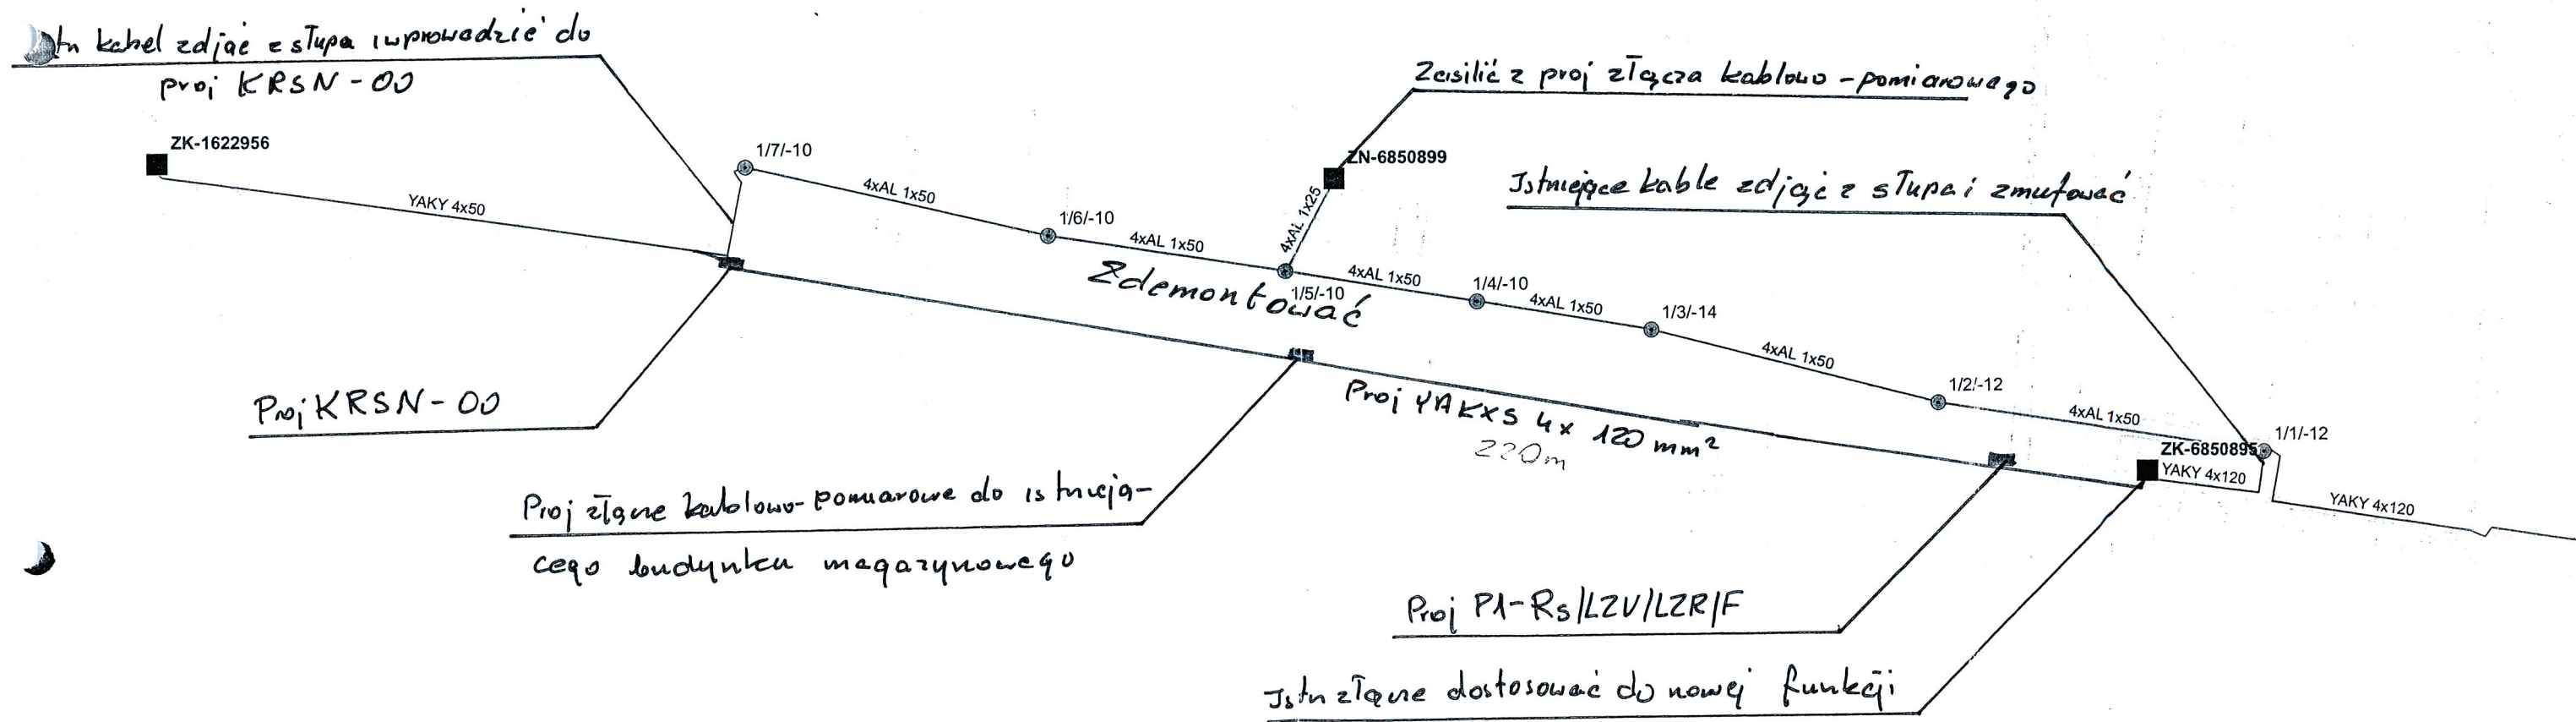 Istn kabel zdjąć z słupa i wprowadzić do
proj KRSN-00
Zasilić z proj złącza kablowo-pomiarowego
ZK-1622956
1/7/-10
ZN-6850899
Istniejące kable zdjąć z słupa i zmufować
YAKY 4x50
4xAL 1x50
1/6/-10
4xAL 1x50
4xAL 1x25
Zdemontować
1/5/-10
4xAL 1x50
1/4/-10
4xAL 1x50
1/3/-14
4xAL 1x50
1/2/-12
4xAL 1x50
1/1/-12
ZK-6850895
YAKY 4x120
YAKY 4x120
Proj KRSN-00
Proj YAKXS 4x 120 mm²
220m
Proj złącze kablowo-pomiarowe do istnieją-
cego budynku magazynowego
Proj P1-Rs/LZV/LZR/F
Istn złącze dostosować do nowej funkcji